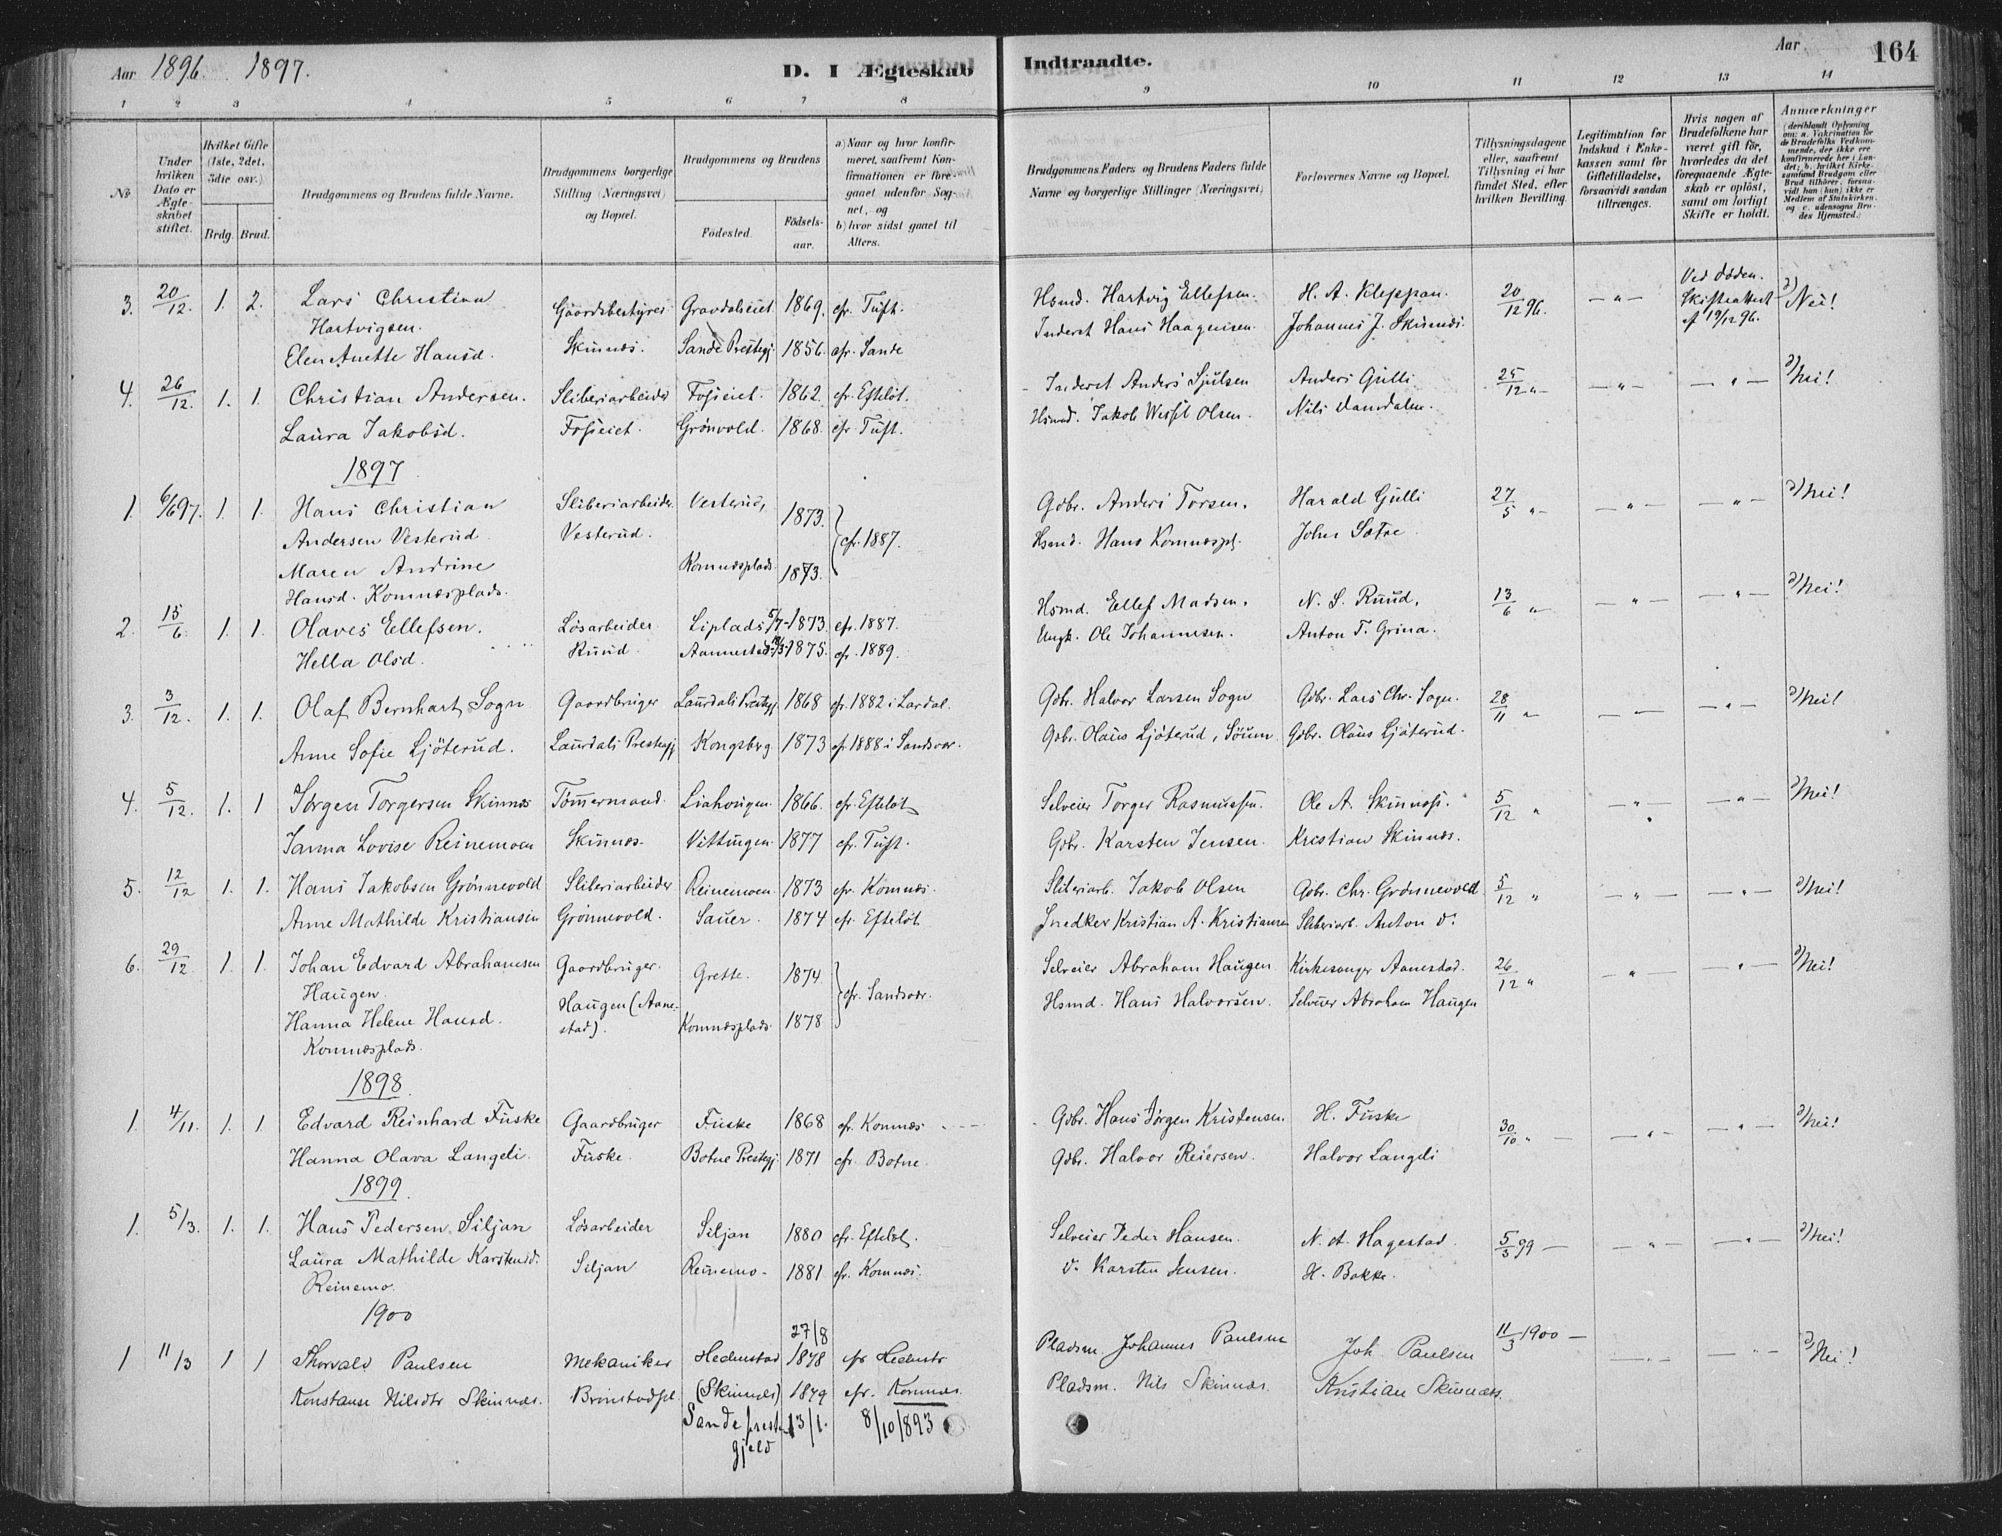 Aar 1896. 1897. D. I Ægteskab Indtraadte. Aar 164
1 2 3 4 5 6 7 8 9 10 11 12 13 14
No.
Under hvilken Dato er Ægteskabet stiftet.
Hvilket Gifte (1ste, 2det, 3die osv.)
Brdg. Brud.
Brudgommens og Brudens fulde Navne.
Brudgommens borgerlige Stilling (Næringsvei) og Bopæl.
Brudgommens og Brudens
Fødested. Fødselsaar.
a) Naar og hvor konfirmeret, saafremt Konfirmationen er foregaaet udenfor Sognet, og
b) hvor sidst gaaet til Alters.
Brudgommens Faders og Brudens Faders fulde Navne og borgerlige Stillinger (Næringsvei)
Forlovernes Navne og Bopæl.
Tillysningsdagene eller, saafremt Tillysning ei har fundet Sted, efter hvilken Bevilling.
Legitimation for Indskud i Enkekassen samt for Giftetilladelse, forsaavidt saadan tiltrænges.
Hvis nogen af Brudefolkene har været gift før, hvorledes da det foregaaende Ægteskab er opløst, samt om lovligt Skifte er holdt.
Anmærkninger
3. 20/12. 1. 2. Lars Christian Gaardsbestyrer Gravdalseiet 1869. cfr. Tuft. Hsmd. Hartvig Ellefsen. H. A. Kleppan. 20/12 96. — " — Ved Døden. a) Nei!
Hartvigsen. Skinnæs. Inderst Hans Haagensen Johannes J. Skinnæs. Skifteattest
Elen Anette Hansd. Sande Prestegj. 1856. cfr. Sande af 19/12 96.
4. 26/12. 1. 1. Christian Andersen. Sliberiarbeider Fosseiet. 1862. cfr. Efteløt. Inderst Anders Sjulsen Anders Gulli 25/12 " — — " — — " — a) Nei!
Laura Jakobsd. Fosseiet. Grønvold. 1868. cfr. Tuft. Hsmd. Jakob Olsen. Nils Damdalen.
1897
1. 6/6 97. 1. 1. Hans Christian Sliberiarbeider Vesterud, 1873. Gdbr. Anders Torsen. Harald Gulli 27/5 " — — " — — " — a) Nei!
Andersen Vesterud. Vesterud. cfr. 1887. Hsmd. Hans Komnæspl. Johs Sætre
Maren Andrine Komnæsplads 1873.
Hansd. Komnæsplads.
2. 15/6. 1. 1. Olaves Ellefsen. Løsarbeider Liplads 5/7 - 1873. cfr. 1887. Hsmd. Ellef Madsen. N. S. Ruud, 13/6 " — — " — — " — a) Nei!
Hella Olsd. Ruud. Aannestad 1875. cfr. 1889. Ungk. Ole Johannesen. Anton T. Grina.
3. 3/12. 1. 1. Olaf Bernhart Sogn Gaardbruger Laurdals Prestegj. 1868 cfr. 1882 i Lardal. Gdbr. Halvor Larsen Sogn Gdbr. Lars Chr. Sogn. 28/11 " — " — — " — a) Nei!
Anne Sofie Ljøterud. Laurdals Prestegj. Kongsberg 1873 cfr. 1888 i Sandsvær. Gdbr. Olaus Ljøterud, Søum. Gdbr. Olaus Ljøterud.
4. 5/12. 1. 1 Jørgen Torgersen Skinnæs Tømmermand. Liahougen. 1866. cfr. Efteløt Selveier Torger Rasmussen. Ole A. Skinnæs. 5/12 " — " — — " — a) Nei!
Janna Lovise Reinemoen Skinnæs. Vittingen. 1877 cfr. Tuft. Gdbr. Karsten Jensen. Kristian Skinnæs.
5. 12/12 1. 1. Hans Jakobsen Grønnevold Sliberiarbeider Reinemoen 1873 cfr. Komnæs. Sliberiarb. Jakob Olsen Gdbr. Chr. Grønnevold 5/12 " — " — — " — a) Nei!
Anne Mathilde Kristiansen Grønnevold. Sauer. 1874 cfr. Efteløt. Snedker Kristian A. Kristiansen Sliberiarb. Anton do.
6. 29/12 1. 1. Johan Edvard Abrahamsen Gaardbruger. Grette. 1874 Selveier Abraham Haugen Kirkesanger Aanestad. 26/12 " — " — — " — a) Nei!
Haugen. Haugen (Aanestad). cfr. Sandsvær. Hsmd. Hans Halvorsen. Selveier Abraham Haugen
Hanna Helene Hansd. Komnæsplads. 1878
Komnæsplads.
1898.
1. 4/11. 1. 1 Edvard Reinhard Fuske Gaardbruger Fuske 1868 cfr. Komnæs Gdbr. Hans Jørgen Kristensen. H. Fuske 30/10 " — — " — — " — a) Nei!
Hanna Olava Langeli. Fuske. Botne Prestegj. 1871 cfr. Botne. Gdbr. Halvor Reiersen. Halvor Langeli
1899.
1. 5/3. 1. 1. Hans Pedersen Siljan Løsarbeider Siljan 1880 cfr. Efteløt. Selveier Peder Hansen. N. A. Hagestad 5/3 99 — — " — — " — a) Nei!
Laura Mathilde Karstensd. Siljan Reinemo. 1881. cfr. Komnæs. do. Karsten Jensen. H. Bakke.
Reinemo.
1900
1 11/3 1 1 Thorvald Paulsen Mekaniker Hedenstad 27/8 1878 cfr Hedenst. Pladsm. Johannes Paulsen Joh. Paulsen 11/3 1900 — a) Nei!
Konstanse Nilsdtr Skinnæs. Brønstadpl. (Skinnæs) 1879 cfr. Komnæs. Pladsm. Nils Skinnæs. Kristian Skinnæs.
Sande prestegjeld 13/1. 8/10 1893